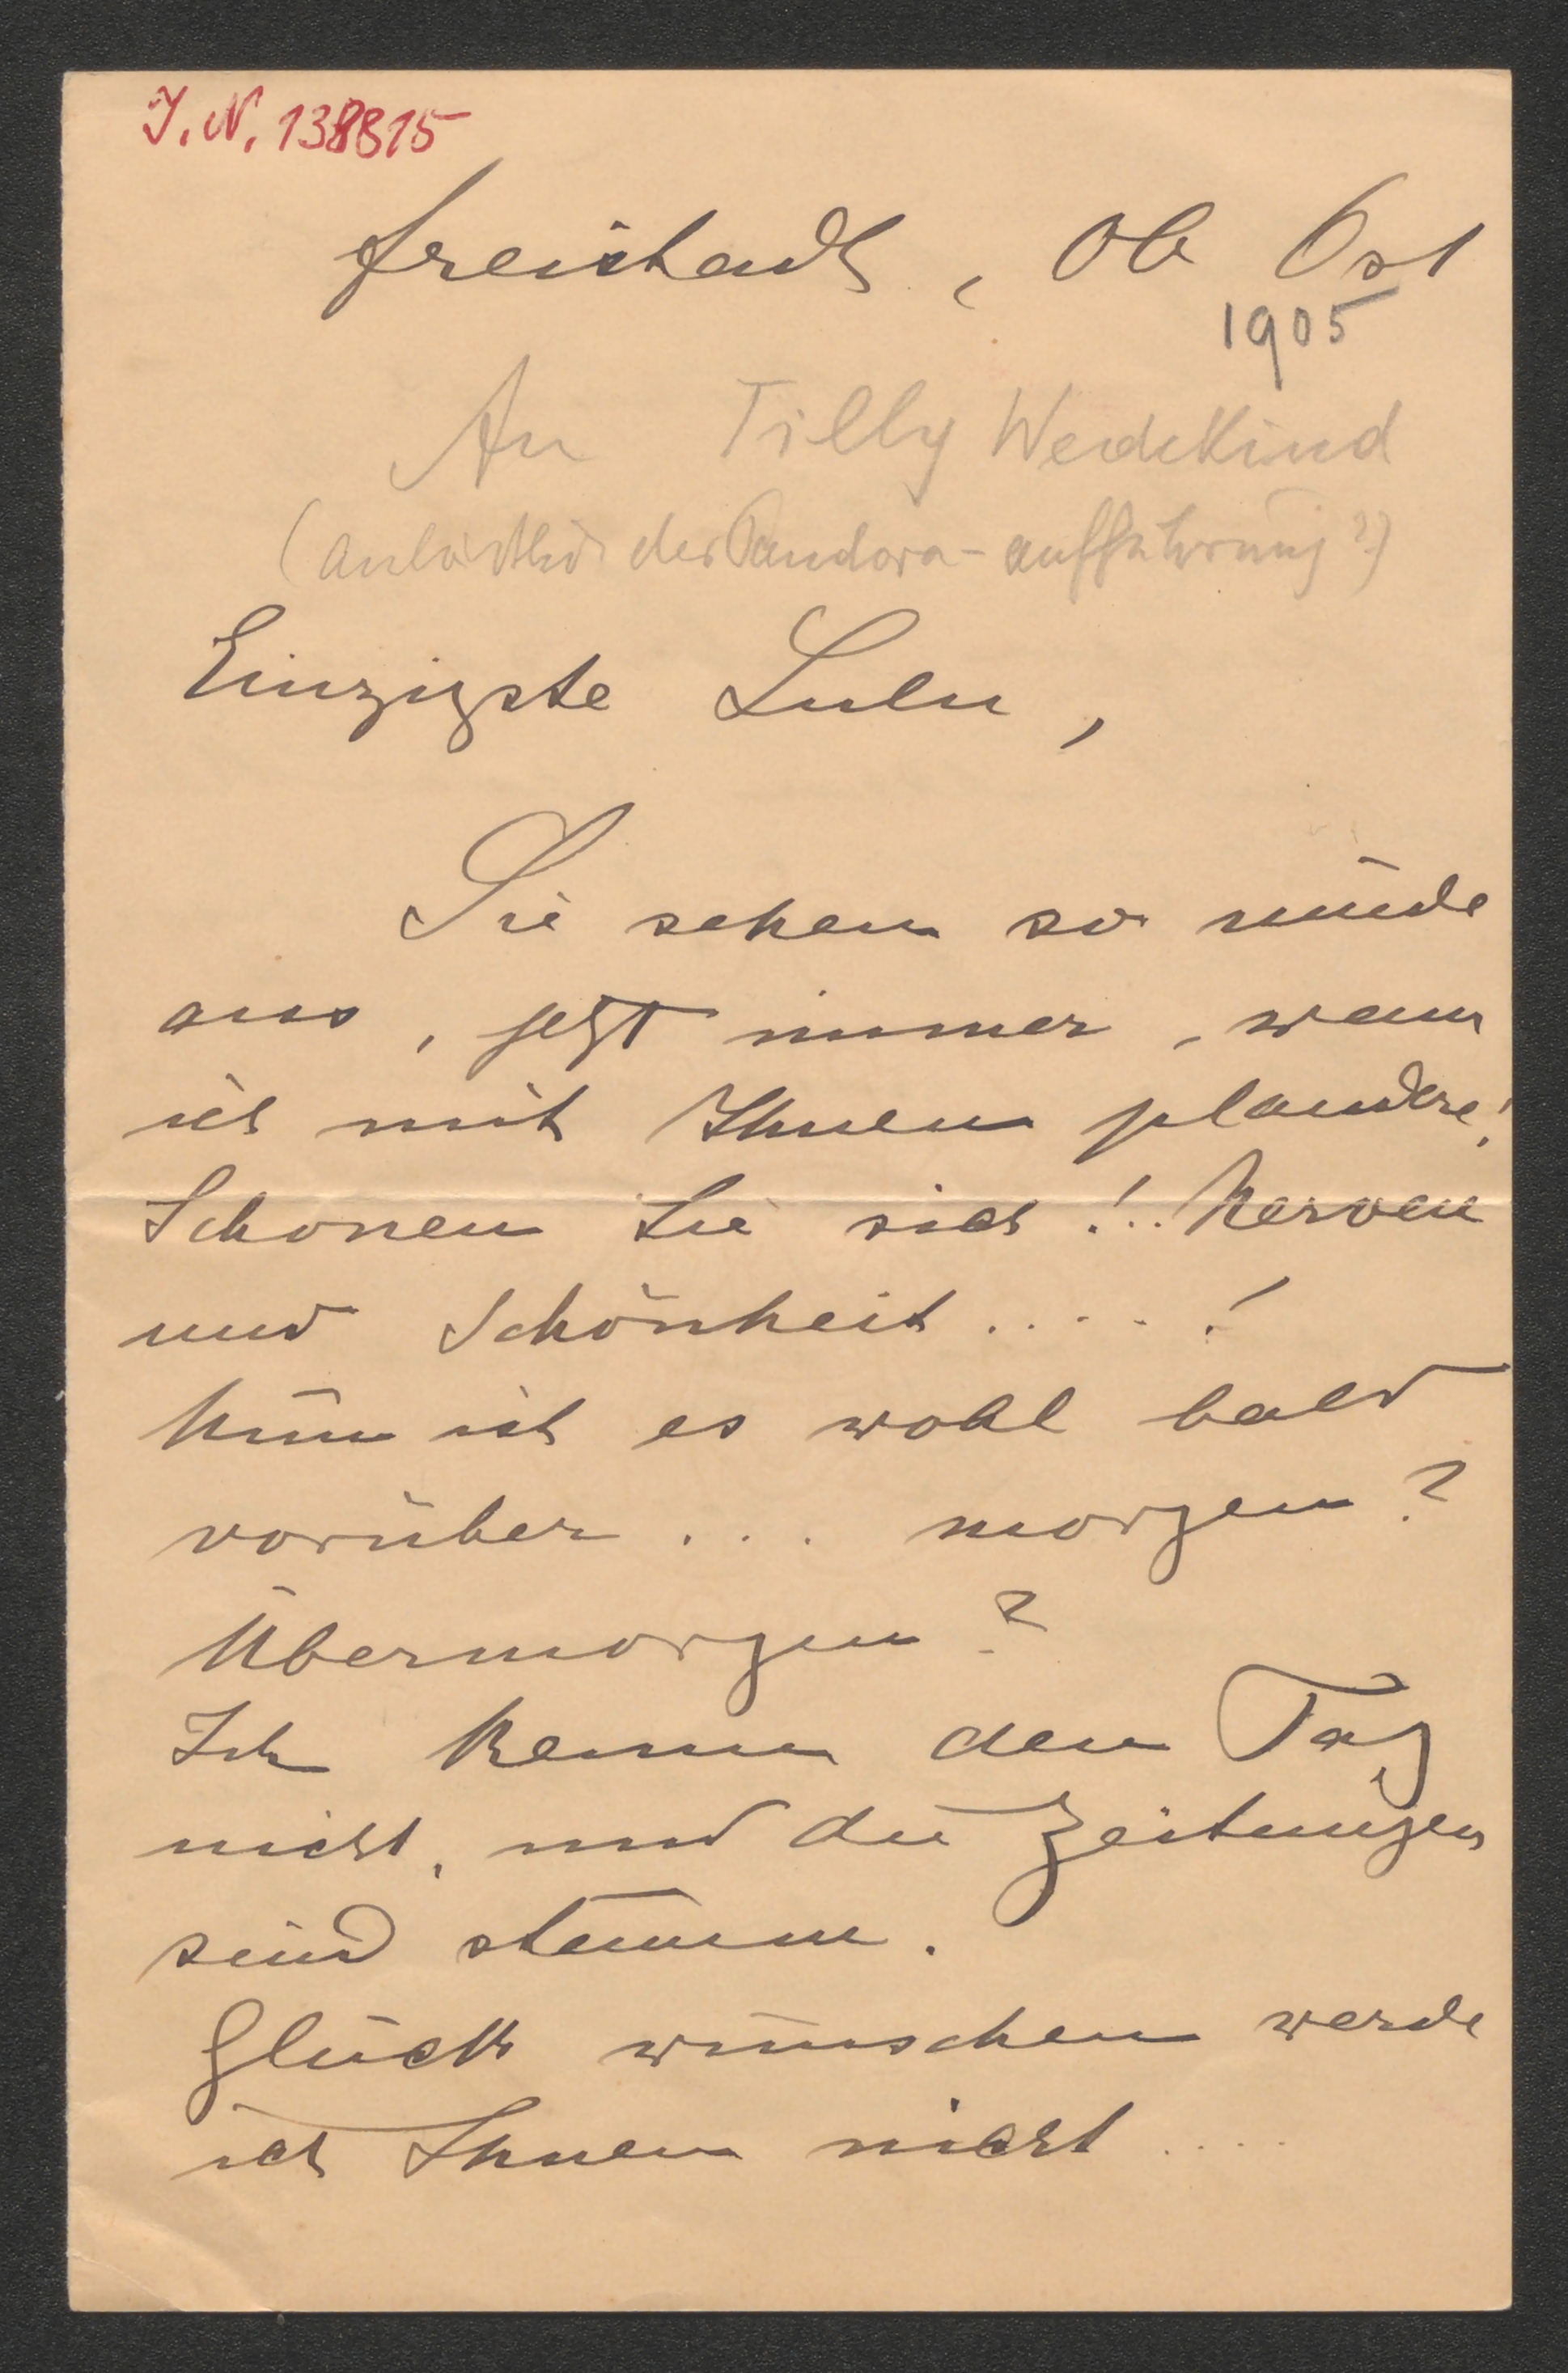 J. N. 138815
Freistadt, Ob Öst
1905
An Tilly Wedekind
(anläßlich der Pandora-aufführung?)
Einzigste Lulu,
Sie sehen so müde
aus, jetzt immer, wenn
ich mit Ihnen plaudere!
Schonen Sie sich!.. Nerven
und Schönheit . . . . . !
Nun ist es wohl bald
vorüber . . . morgen?
Übermorgen?
Ich kenne den Tag
nicht, und die Zeitungen
sind stumm.
Glück wünschen werde
ich Ihnen nicht . . . .